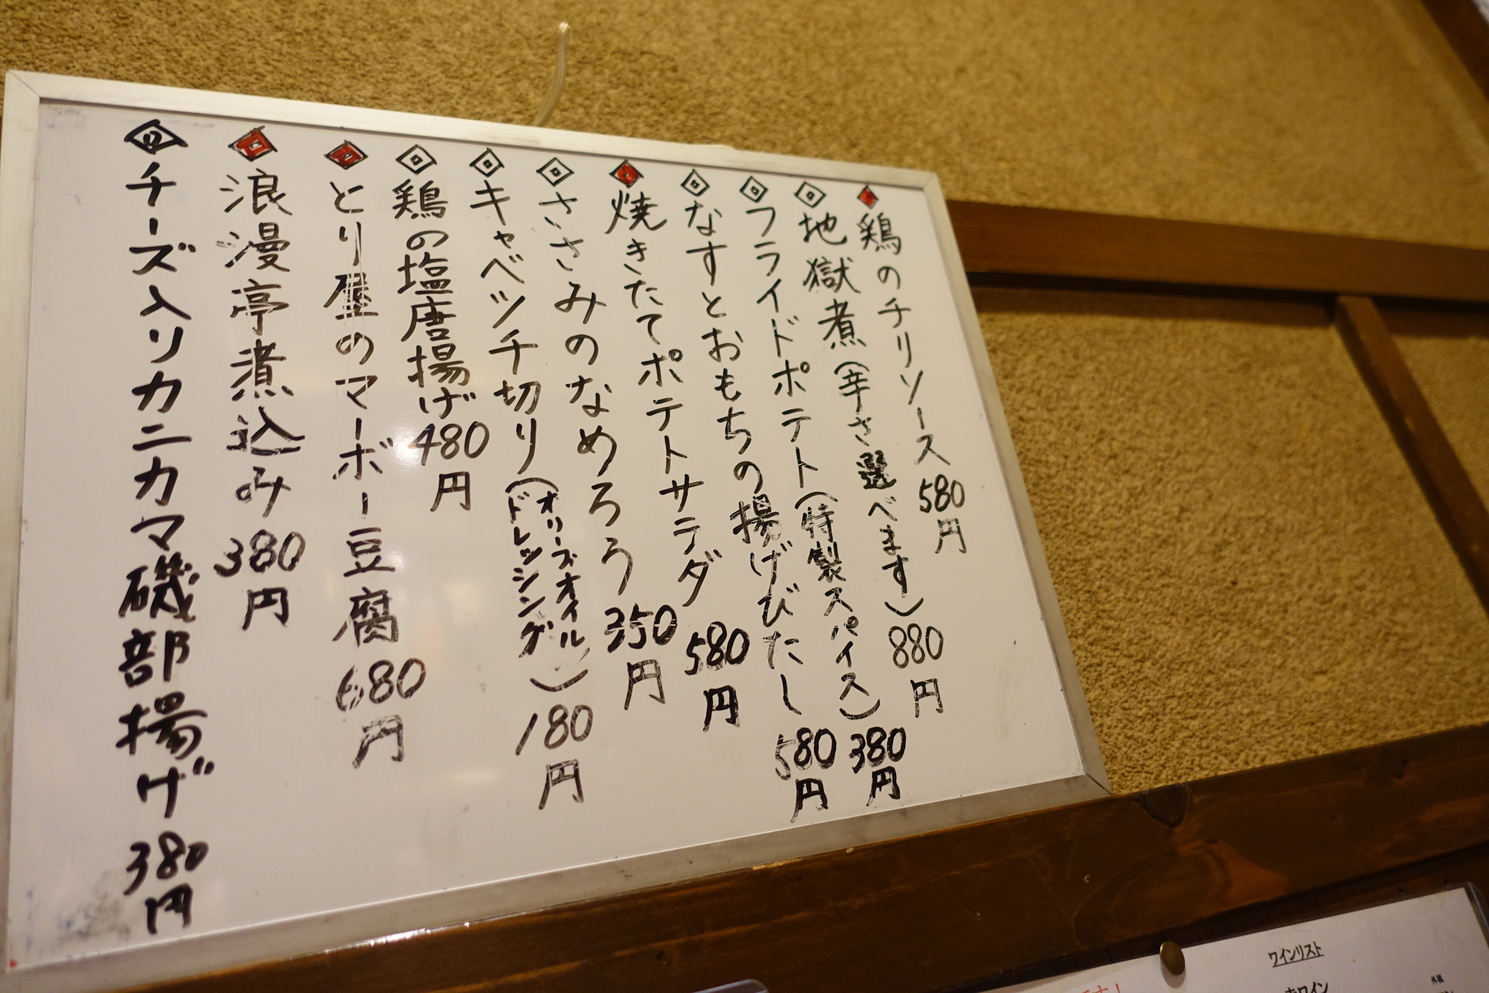 鶏のチリソース 580円
地獄煮(辛さ選べます) 880円
フライドポテト(特製スパイス) 380円
なすとおもちの揚げびたし 580円
焼きたてポテトサラダ 580円
ささみのなめろう 350円
キャベツチ切り(オリーブオイルドレッシング) 180円
鶏の塩唐揚げ 480円
とり屋のマーボー豆腐 680円
浪漫亭煮込み 380円
チーズ入リカニカマ磯部揚げ 380円
ワインリスト